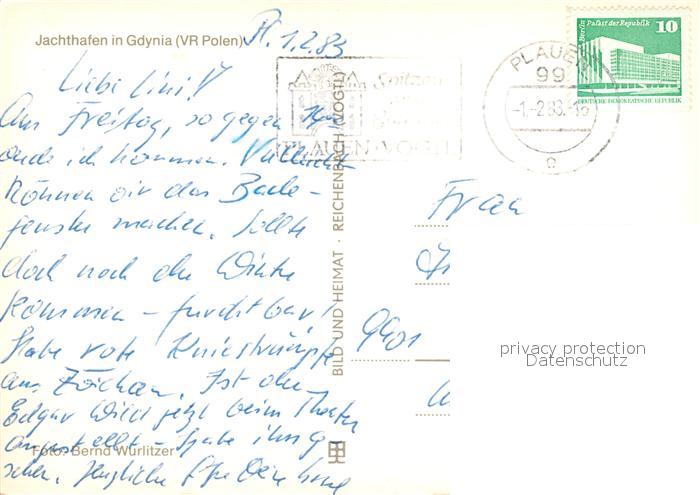 Jachthafen in Gdynia (VR Polen)
Pl. 1.2.83
Liebe Lini!
Am Freitag, so gegen
ich kommen. Vielleicht
können wir das Bade-
fenster machen. Sollte
doch noch der Winter
kommen - furchtbar!
Habe rote Kniestrümpfe
aus Ist der
Edgar Wild jetzt beim Theater
angestellt - habe ihn
sehen. Herzliche Deine
Foto: Bernd Wurlitzer
BILD UND HEIMAT · REICHENBACH (VOGTL)
Spitzen
PLAUEN · VOGTL
PLAUEN
99
-1.-2.83.-16
e
Berlin, Palast der Republik
10
DEUTSCHE DEMOKRATISCHE REPUBLIK
Frau
9901
privacy protection
Datenschutz